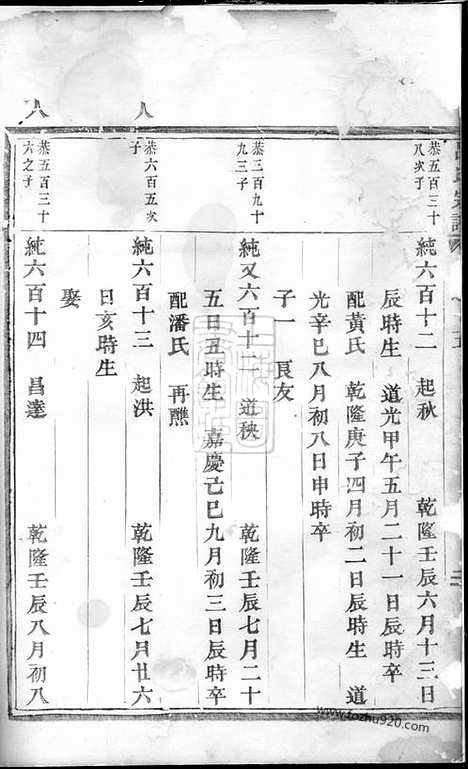 恭五百三十
八次子
純六百十二 起秋 乾隆壬辰六月十三日
辰時生 道光甲午五月二十一日辰時卒
配黃氏 乾隆庚子四月初二日辰時生 道
光辛巳八月初八日申時卒
子一 良友
恭三百九十
九三子
純又六百十二 道秧 乾隆壬辰七月二十
五日丑時生 嘉慶己巳九月初三日辰時卒
配潘氏 再醮
八
恭六百五次
子
純六百十三 起洪 乾隆壬辰七月廿六
日亥時生
娶
八
恭五百三十
六之子
純六百十四 昌達 乾隆壬辰八月初八
www.tozhu920.com